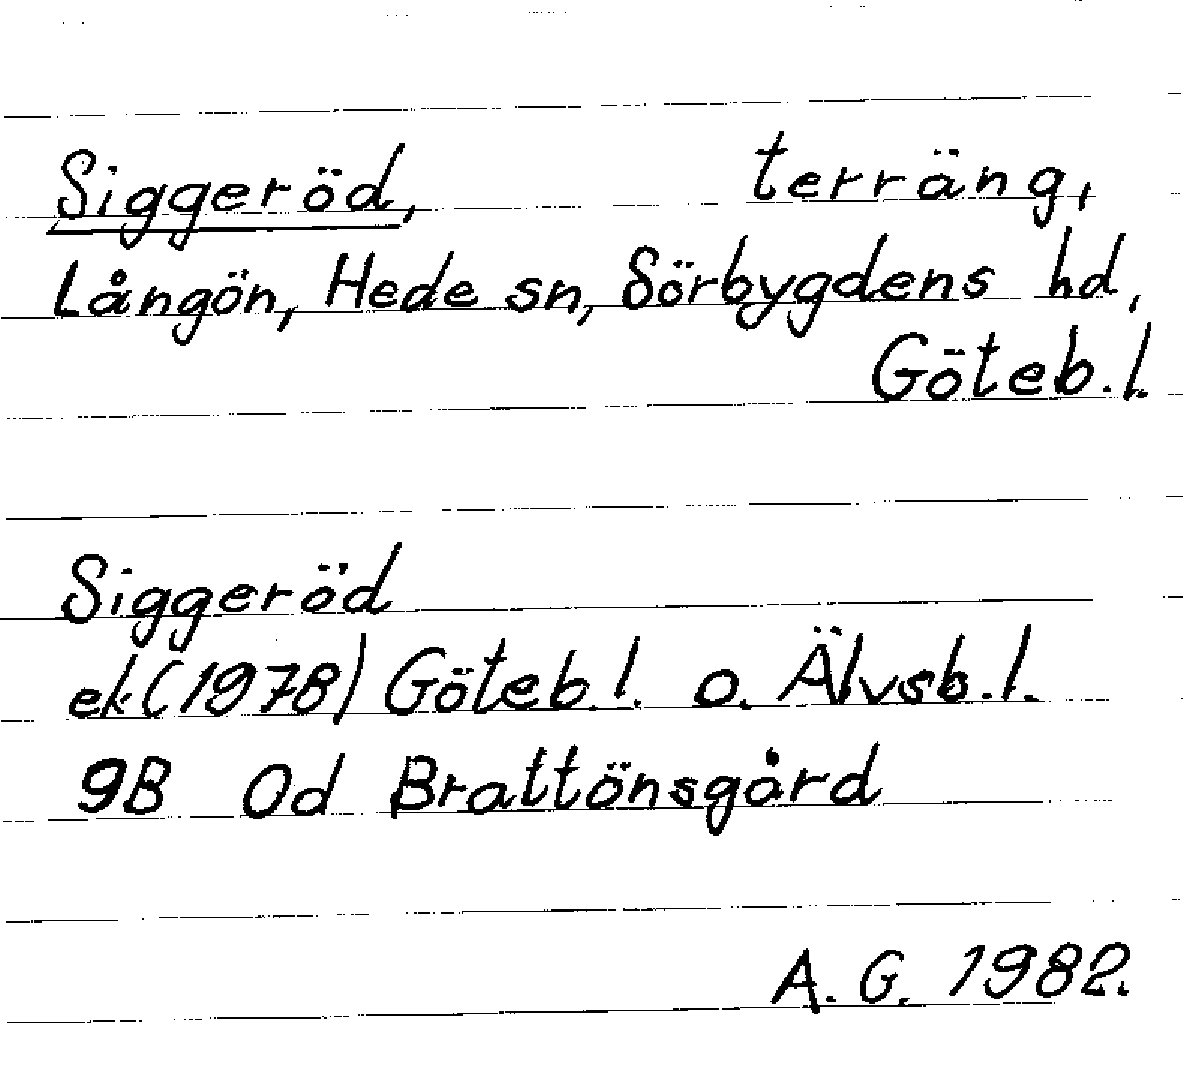 Siggeröd, terräng,
Långön, Hede sn, Sörbygdens hd,
Göteb.l.
Siggeröd
ek (1978) Göteb.l. o. Älvsb.l.
9B 0d Brattönsgård
A. G. 1982.